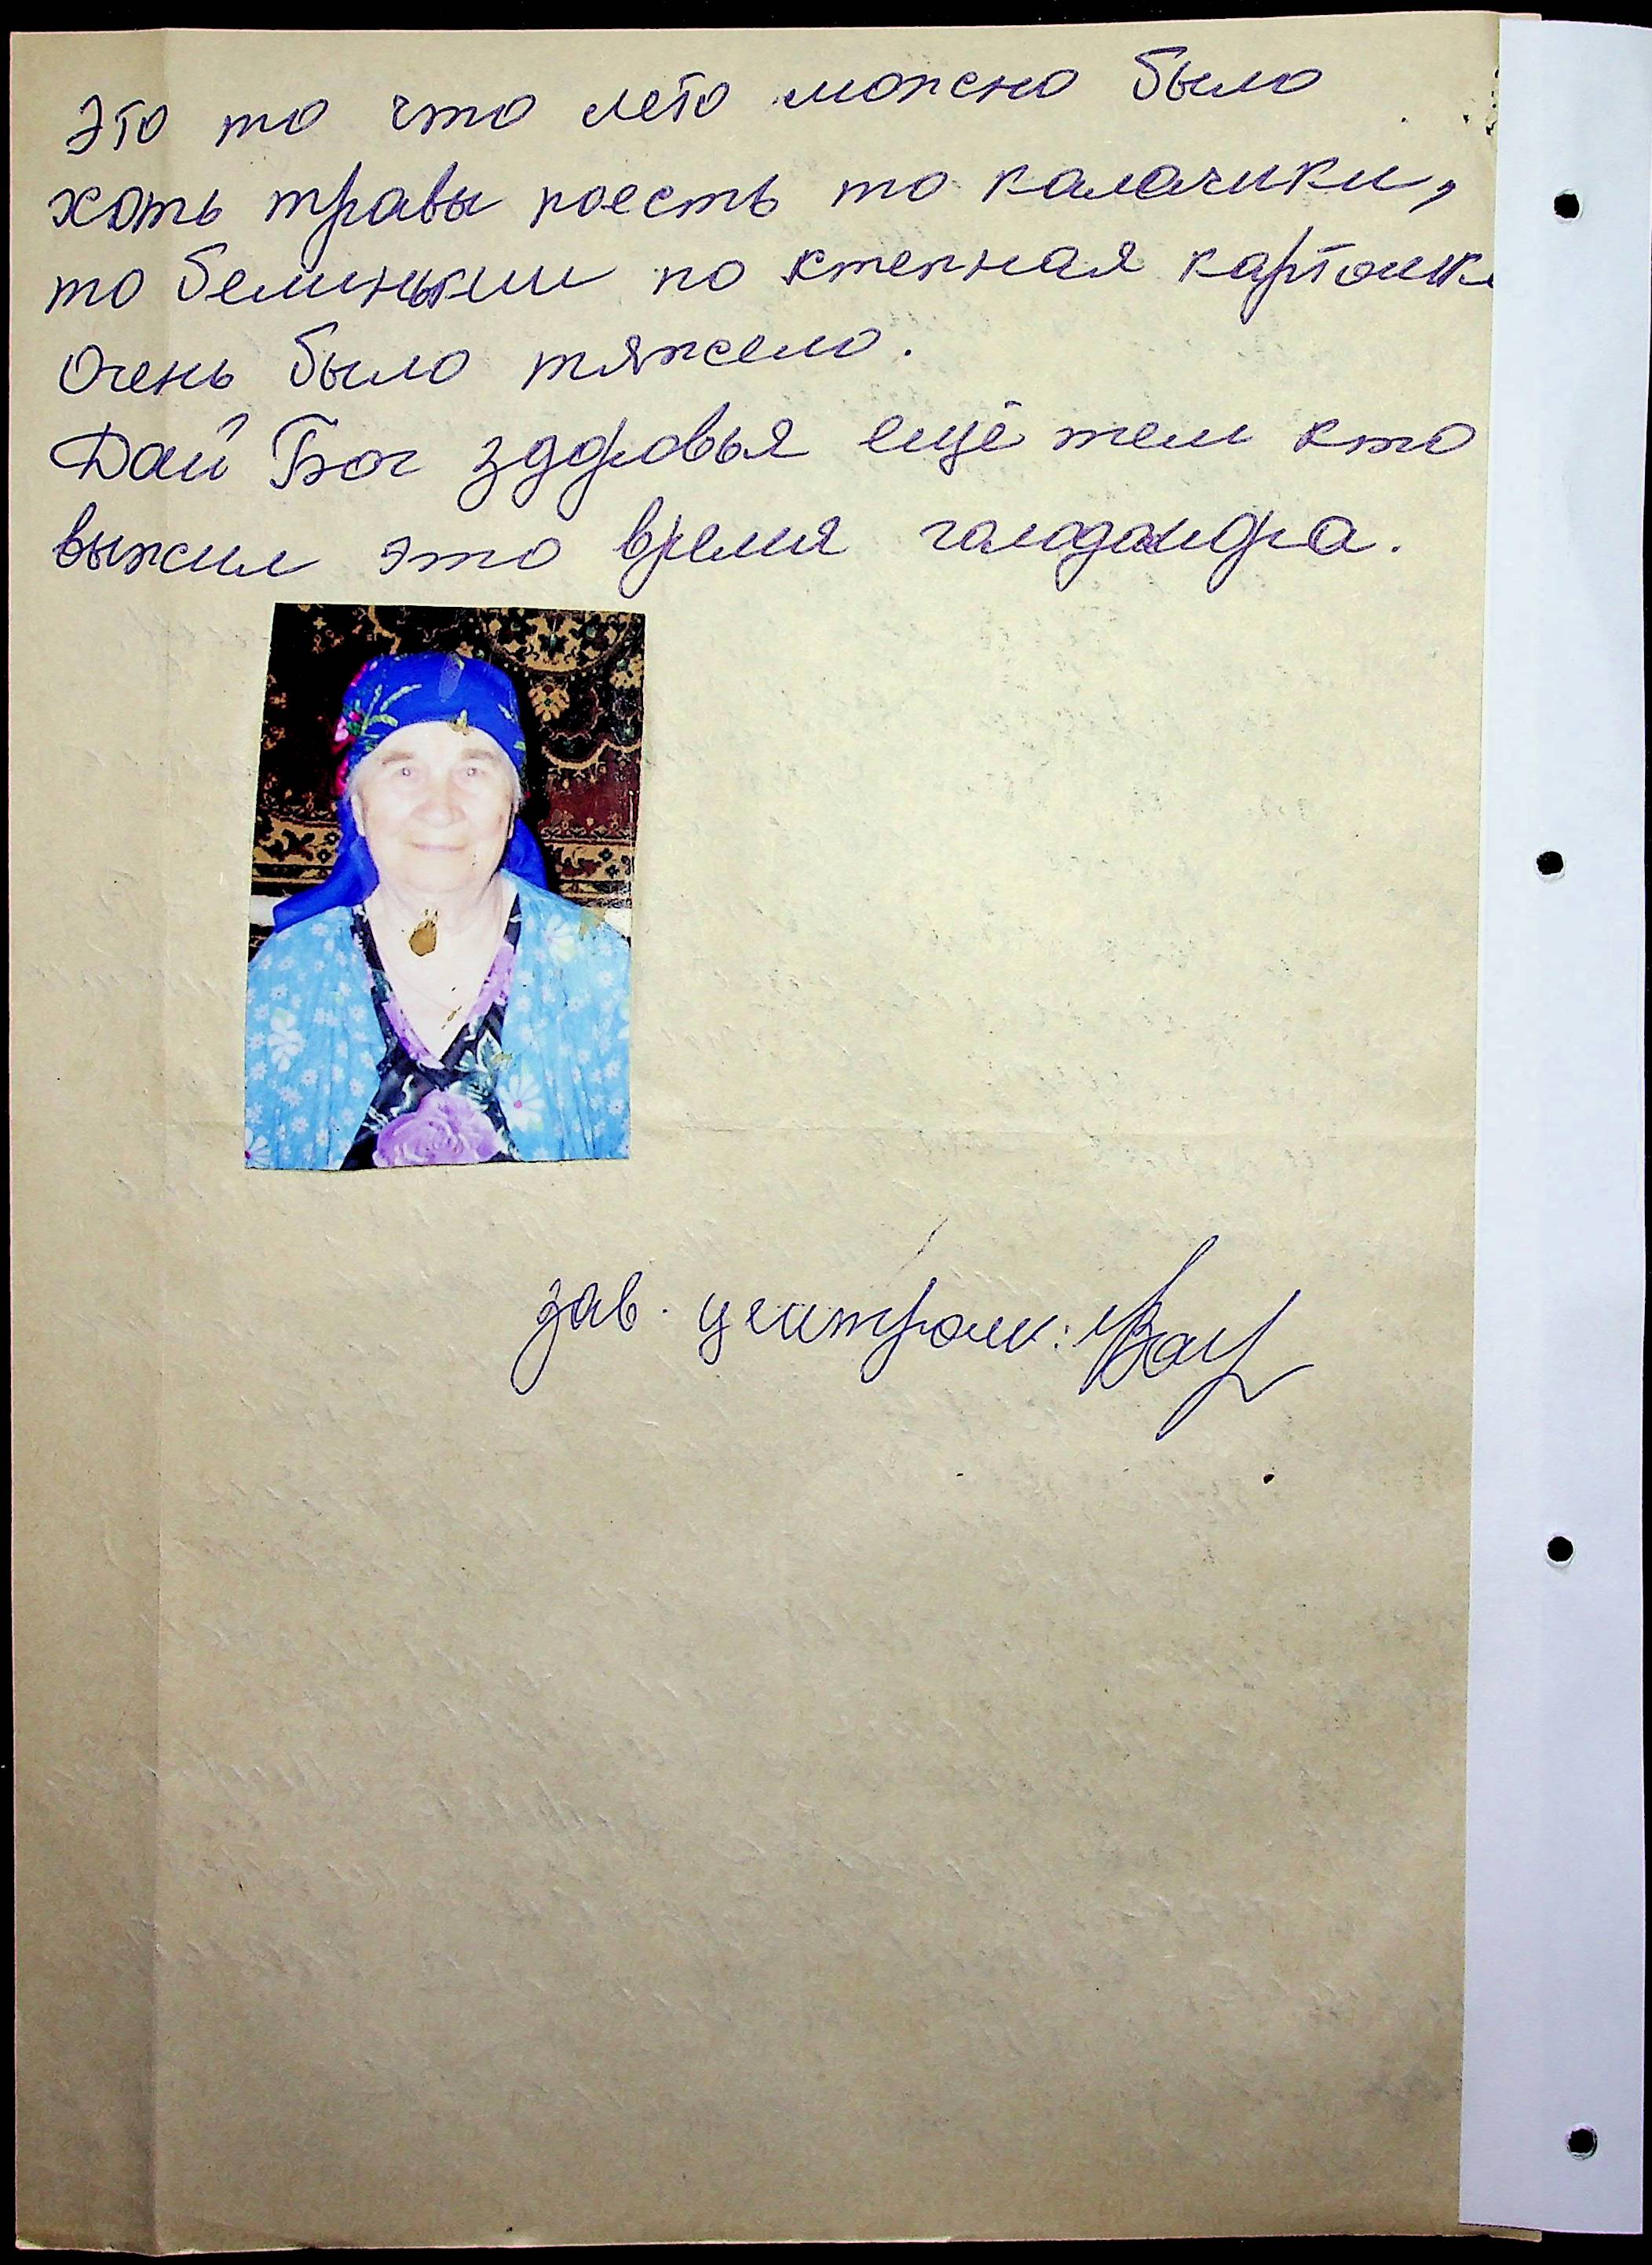 Это то что лето можно было
хоть травы поесть то калачики,
то белинькии по степная картошк
Очень было тяжело.
Дай Бог здоровья ещё тем кто
выжил это время галодамора.
зав. центром: